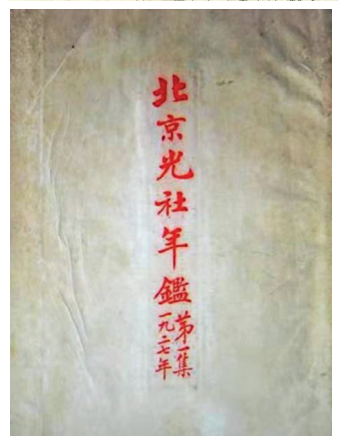 北京光社年鑑
第一集
一九二七年